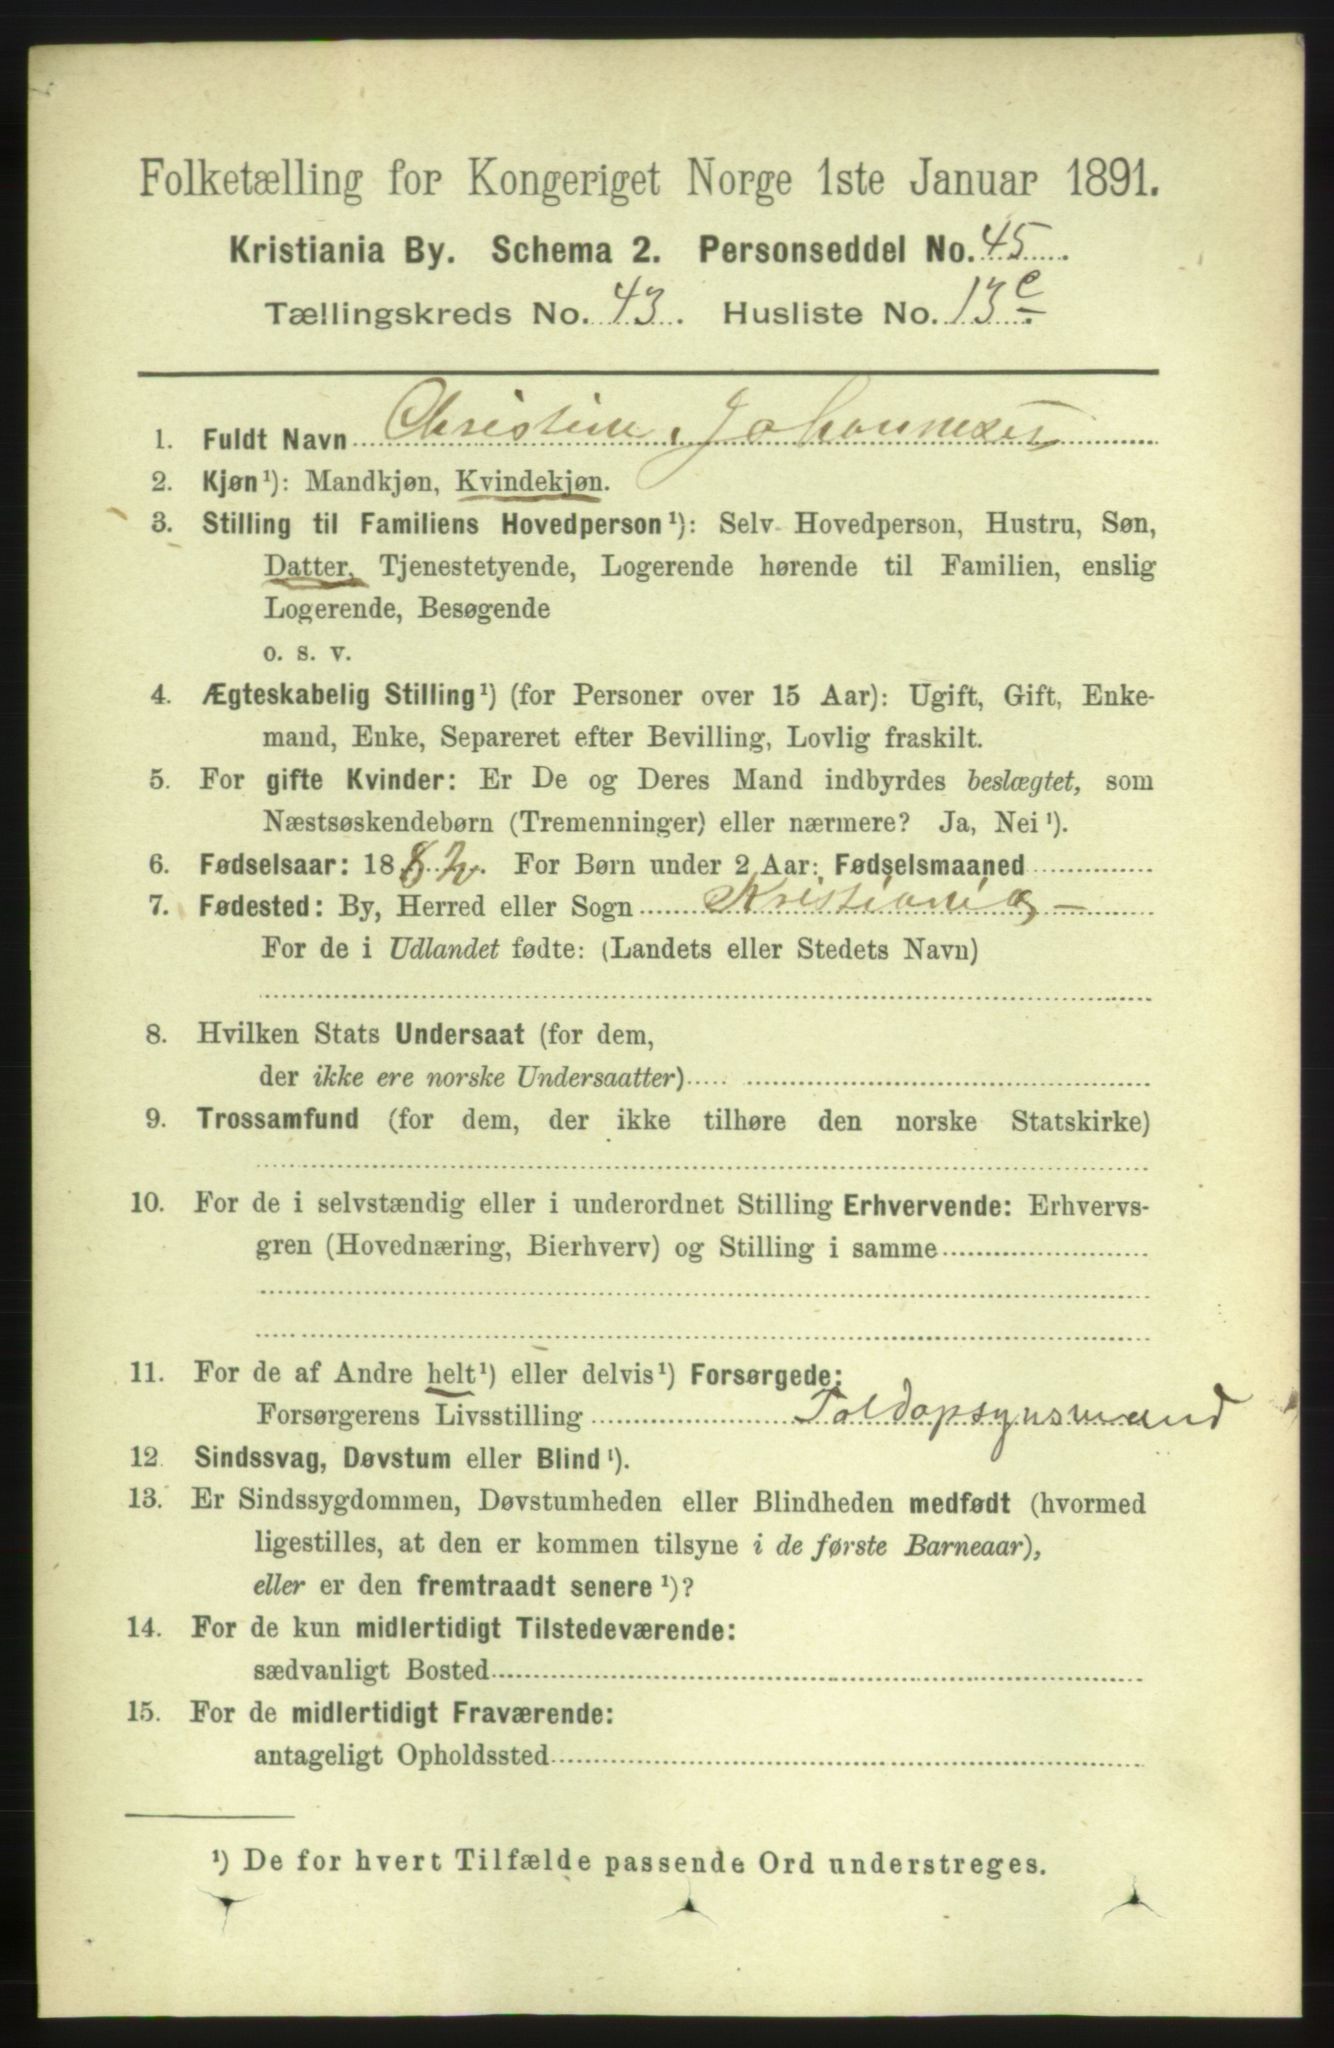 Folketælling for Kongeriget Norge 1ste Januar 1891.
Kristiania By. Schema 2. Personseddel No. 45
Tællingskreds No. 43. Husliste No. 13 c
1. Fuldt Navn Christine Johannesen
2. Kjøn¹): Mandkjøn, Kvindekjøn.
3. Stilling til Familiens Hovedperson¹): Selv Hovedperson, Hustru, Søn,
Datter, Tjenestetyende, Logerende hørende til Familien, enslig
Logerende, Besøgende
o. s. v.
4. Ægteskabelig Stilling¹) (for Personer over 15 Aar): Ugift, Gift, Enke-
mand, Enke, Separeret efter Bevilling, Lovlig fraskilt.
5. For gifte Kvinder: Er De og Deres Mand indbyrdes beslægtet, som
Næstsøskendebørn (Tremenninger) eller nærmere? Ja, Nei¹).
6. Fødselsaar: 1882. For Børn under 2 Aar: Fødselsmaaned
7. Fødested: By, Herred eller Sogn Kristiania
For de i Udlandet fødte: (Landets eller Stedets Navn)
8. Hvilken Stats Undersaat (for dem,
der ikke ere norske Undersaatter)
9. Trossamfund (for dem, der ikke tilhøre den norske Statskirke)
10. For de i selvstændig eller i underordnet Stilling Erhvervende: Erhvervs-
gren (Hovednæring, Bierhverv) og Stilling i samme
11. For de af Andre helt¹) eller delvis¹) Forsørgede:
Forsørgerens Livsstilling Toldopsynsmand
12. Sindssvag, Døvstum eller Blind¹).
13. Er Sindssygdommen, Døvstumheden eller Blindheden medfødt (hvormed
ligestilles, at den er kommen tilsyne i de første Barneaar),
eller er den fremtraadt senere¹)?
14. For de kun midlertidigt Tilstedeværende:
sædvanligt Bosted
15. For de midlertidigt Fraværende:
antageligt Opholdssted
¹) De for hvert Tilfælde passende Ord understreges.